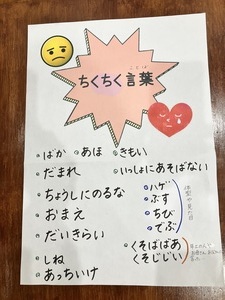 ことば
ちくちく言葉
・ばか ・あほ ・きもい
・だまれ ・いっしょにあそばない
・ちょうしにのるな ・ハゲ
・ぶす
・おまえ ・ちび
・でぶ
・だいきらい
・くそばばあ
くそじじい
・しね
・あっちいけ